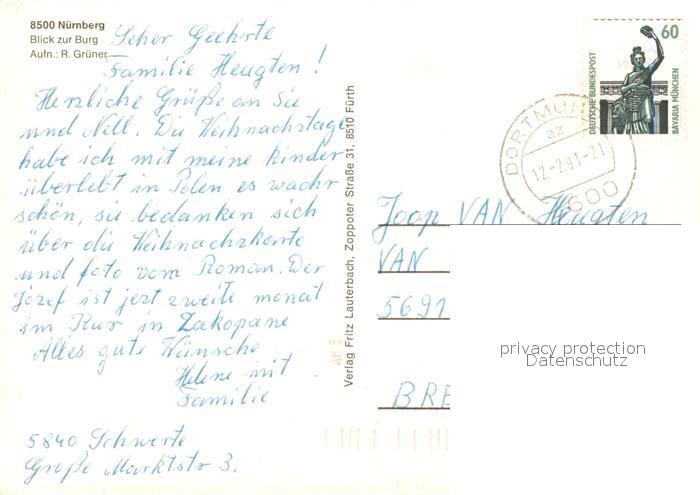 8500 Nürnberg
Blick zur Burg
Aufn.: R. Grüner
Seher Geehrte
Familie Heugten!
Herzliche Grüße an Sie
und Nell. Die Weihnachstage
habe ich mit meine Kinder
überlebt in Polen es wachr
schön, sie bedanken sich
über die Weihnachzkarte
und foto vom Roman. Der
Józef ist jezt zweite monat
im Kur in Zakopane
Alles gute Wünsche
Helene mit
Familie
5840 Schwerte
Große Marktstr 3.
Verlag Fritz Lauterbach, Zoppoter Straße 31, 8510 Fürth
60
DEUTSCHE BUNDESPOST
BAVARIA MÜNCHEN
DORTMUN
az
12-2.91-21
4600
Joop VAN Heugten
VAN
5691
BRE
privacy protection
Datenschutz